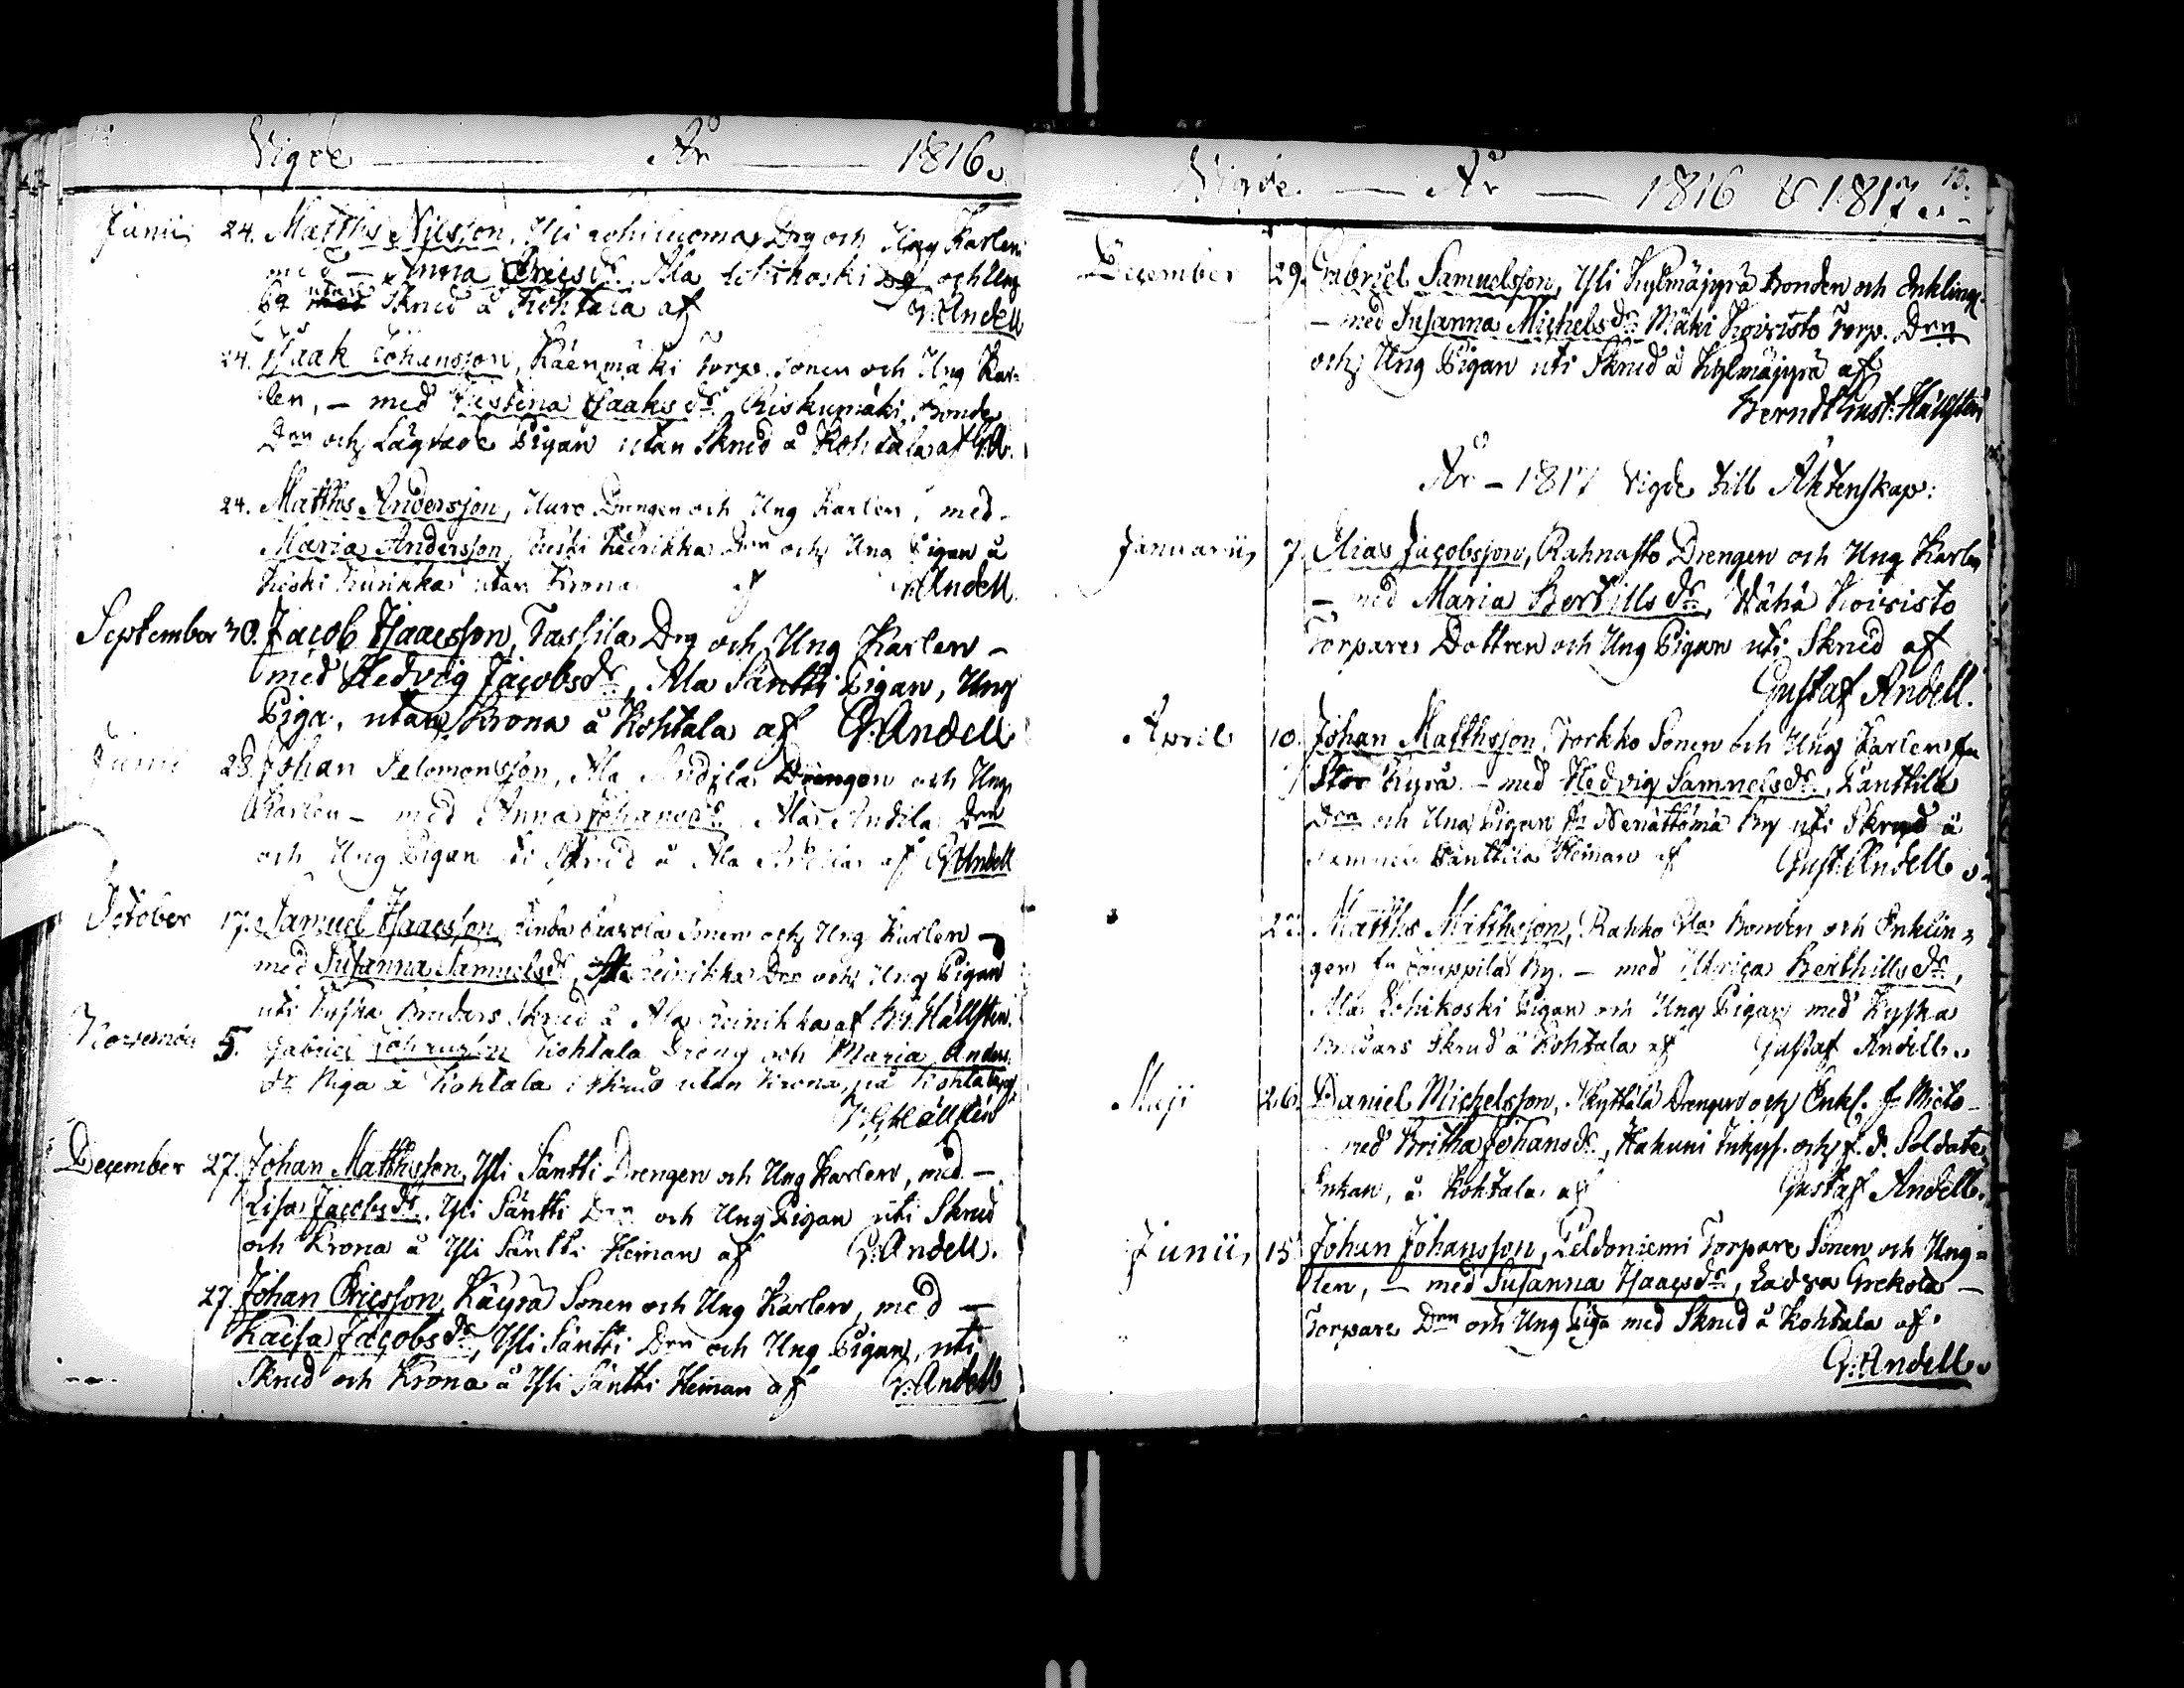 12.
Vigde — År — 1816.
Junii 24. Matths Nilsson, Yli Drg och Ung Karlen
med – Anna Ericsdr. Ala Lohikoski och Ung
utan Skrud å Kohtala af G: Andell
24. Isaak Johansson, Käenmäki Torp. Sonen och Ung Kar-
len, – med Isaaksdr Riskumäki, Bonde
Drn och Lägrade Pigan utan Skrud å Kohtala af G:A.
24. Matths Andersson, Uuro Drengen och Ung Karlen, med –
Maria Andersson, Drn och Ung Pigan å
utan Krona af G:Andell.
September 30. Jacob Isaacsson, Tassila Drg och Ung Karlen –
med Hedvig Jacobsdr, Ala Säntti Pigan, Ung
Piga, utan Krona å Kohtala af G:Andell
Junii 28. Johan Salomonsson, Ala Andila Drengen och Ung
Karlen – med Anna Johansdr. Ala Andila Drn
och Ung Pigan uti Skrud å Ala Andila af G:Andell
October 17. Samuel Isaacsson, Sonen och Ung Karlen –
med Susanna Samuelsdr, Reinikka Drn och Ung Pigan
uti Tyska Brudars Skrud å Ala Reinikka af B:G: Hällsten.
November 5. Gabriel Johansson Kohtala Dreng och Maria Anders
dr Piga å Kohtala i Skrud utan Krona, på Kohtala af
B:G:Hällsten
December 27. Johan Matthsson, Yli Säntti Drengen och Ung Karlen, med –
Lisa Jacobsdr. Yli Säntti Drn och Ung Pigan uti Skrud
och Krona å Yli Säntti Heman af G:Andell.
27. Johan Ericsson, Käyrä Sonen och Ung Karlen, med –
Kaisa Jacobsdr, Yli Säntti Drn och Ung Pigan, uti
Skrud och Krona å Yli Säntti Heman af G:Andell
13.
Vigde. — År — 1816 & 1817.
December 29. Gabriel Samuelsson, Yli Kylmäjyrä Bonden och Enkling.
– med Susanna Michelsdr. Mäki Koivisto Torp. Drn
och Ung Pigan uti Skrud å Kylmäjyrä af
Berndt Gust. Hällsten
År – 1817 Vigde till Äktenskap:
Januarii 7. Elias Jacobsson, Rahnasto Drengen och Ung Karlen
– med Maria Bertillsdr, Wähä Koivisto
Torpare Dottren och Ung Pigan uti Skrud af
Gustaf Andell.
April 10. Johan Matthsson, Torkko Sonen och Ung Karlen fn
Stor Kyrå – med Hedvig Samuelsdr., Länttilä
Drn och Ung Pigan fn Nenättömä By uti Skrud å
Länttilä Heman af Gust: Andell
22. Matths Matthsson, Rahko Ala Bonden och Enklin-
gen fn Jouppila By. – med Ulrica Berthillsdr,
Ala Lohikoski Pigan och Ung Pigan med Tyska
Brudars Skrud å Kohtala af Gustaf Andell.
Maji 26. Daniel Michelsson, Kyttälä Drengen och Enkl. fn Mieto –
med Britha Johansdr., Hakuni Inhys. och f. d. Soldate
Enkan, å Kohtala af Gustaf Andell.
Junii 15. Johan Johansson, Peldoniemi Torpare Sonen och Ung=
len, – med Susanna Isaacsdr, Ladva Grekola –
Torpare Drn och Ung Piga med Skrud å Kohtala af.
G: Andell